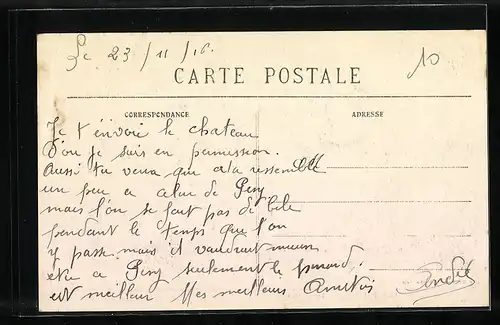 Le 23/11/16.
10
CARTE POSTALE
CORRESPONDANCE
ADRESSE
Je t'envoie le chateau
d'ou je suis en permission.
Aussi tu verra que cela ressemble
un peu a celui de Pesy
mais l'on se fait pas de bile
pendant le temps que l'on
y passe mais il vaudrait mieux
etre a Pesy seulement le
est meilleur Mes meilleurs Amitiés
André